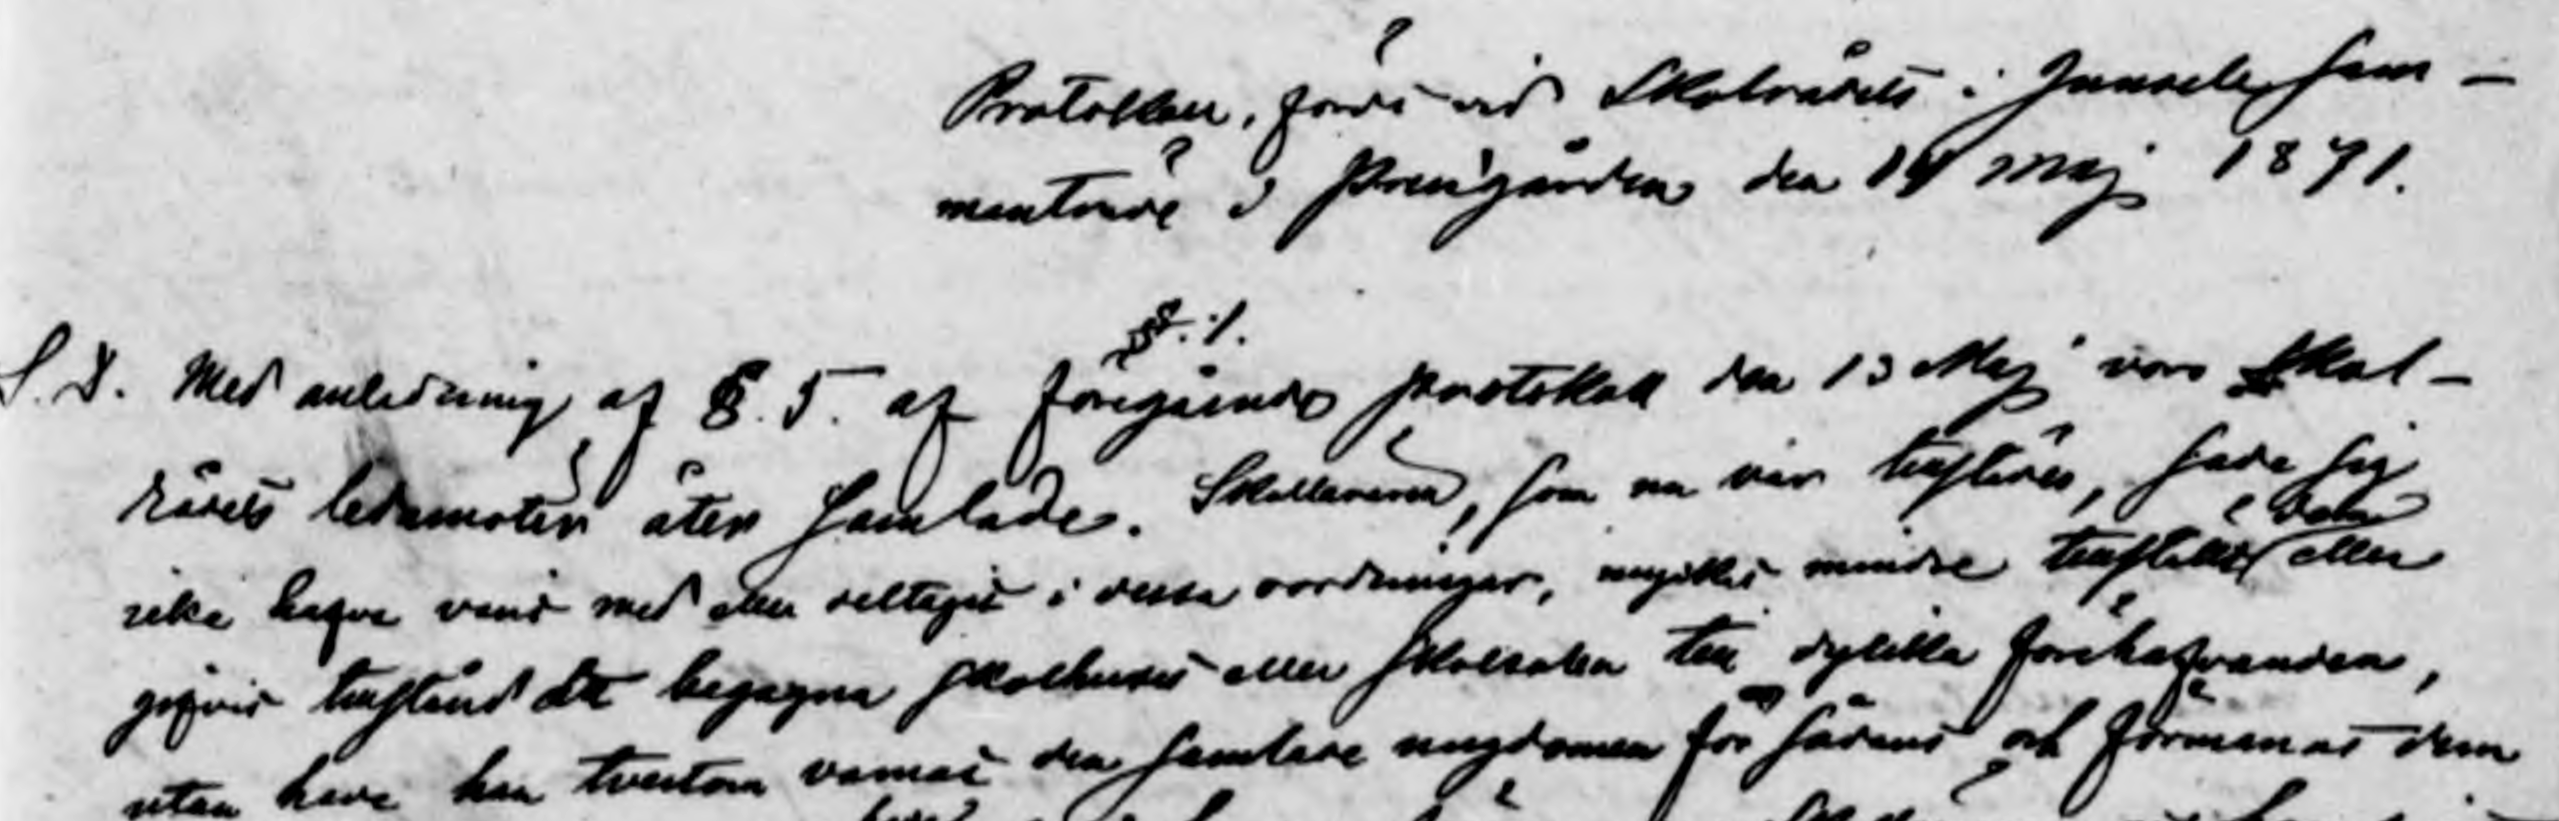 Protokoll, fördt vid Skolrådets i Junsele sam-
manträde i Prestgården den 14 Maj 1871.
§. 1.
S. D. Med anledning af §. 5. af föregående protokoll den 13 Maj voro Skol-
rådets ledamöter åter samlade. Skolläraren, som nu var tillstädes, sade sig
icke hafva varit med eller deltagit i dessa oordningar, mycket mindre tillstält dem eller
gifvit tillstånd att begagna skolhuset eller skolsalen till dylika förehafvanden,
utan hade han tvertom varnat den samlade ungdomen för sådant och förmanat dem